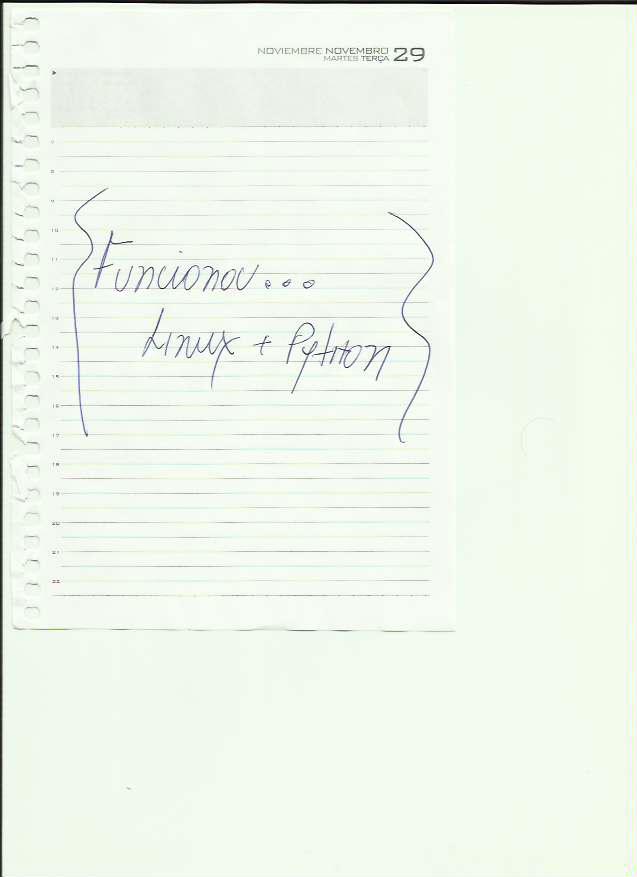 NOVIEMBRE NOVEMBRO 29
MARTES TERÇA
7
8
9
10
11
12
13
14
15
16
17
18
19
20
21
22
Funcionou...
Linux + Python